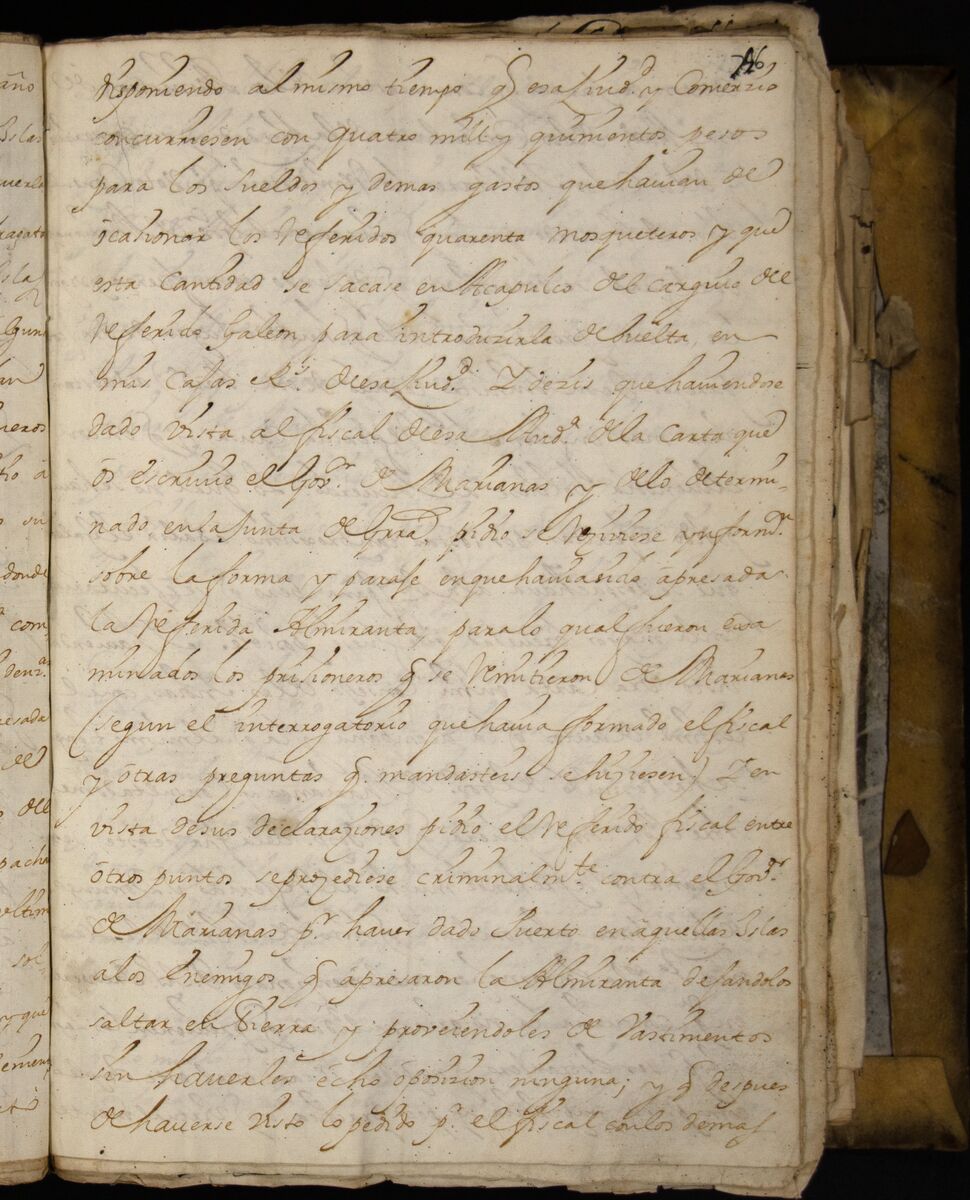 disponiendo al mismo tiempo q̃ esa Ciud.d y Comerzio
concurriesen con quatro mill y quinientos pesos
para los sueldos y demas gastos que havian de
ocasionar los referidos quarenta mosqueteros y que
esta Cantidad se sacase en Acapulco del carguio del
referido Galeon para introduzirla de buelta en
mis Cajas R.s de esa Ciud.d Y dezis que haviendose
dado vista al fiscal de esa Aud.a de la carta que
os escrivio el Gov.or de Marianas y de lo determi-
nado en la Junta de Grra. pidio se reziviese ynform.n
sobre la forma y paraje en que havia sido apresada
la referida Almiranta, para lo qual fueron exa
minados los prisioneros q̃ se remitieron de Marianas
(segun el interrogatorio que havia formado el fiscal
y otras preguntas q̃ mandasteis se hiziesen) Y en
vista de sus declaraziones pidio el referido fiscal entre
otros puntos se prozediese criminalm.te contra el Gov.or
de Marianas p.r haver dado Puerto en aquellas Islas
a los enemigos q̃ apresaron la Almiranta dejandolos
saltar en tierra y proveiendoles de vastimentos
sin haverles echo oposizion ninguna; y q̃ despues
de haverse visto lo pedido p.r el fiscal con los demas